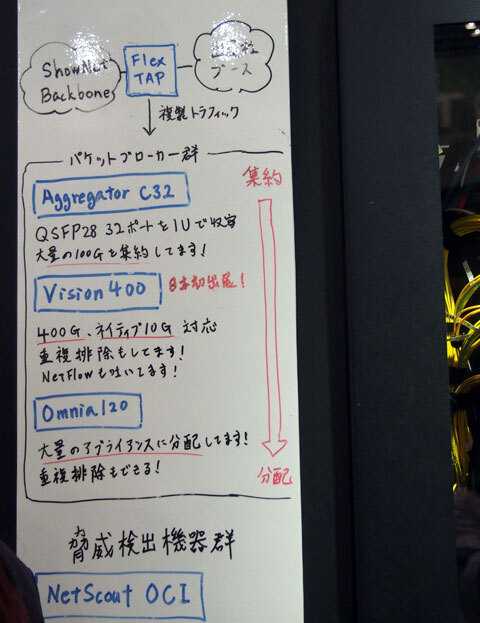 ShowNet
Backbone
Flex
TAP
ブース
複製トラフィック
パケットブローカー群
集約
Aggregator C32
QSFP28 32ポートを1Uで収容
大量の100Gを集約してます!
Vision 400
日本初出展!
400G、ネイティブ10G 対応
重複排除もしてます!
NetFlowも吐いてます!
Omnia120
大量のアプライアンスに分配してます!
重複排除もできる!
分配
脅威検出機器群
NetScout OCI